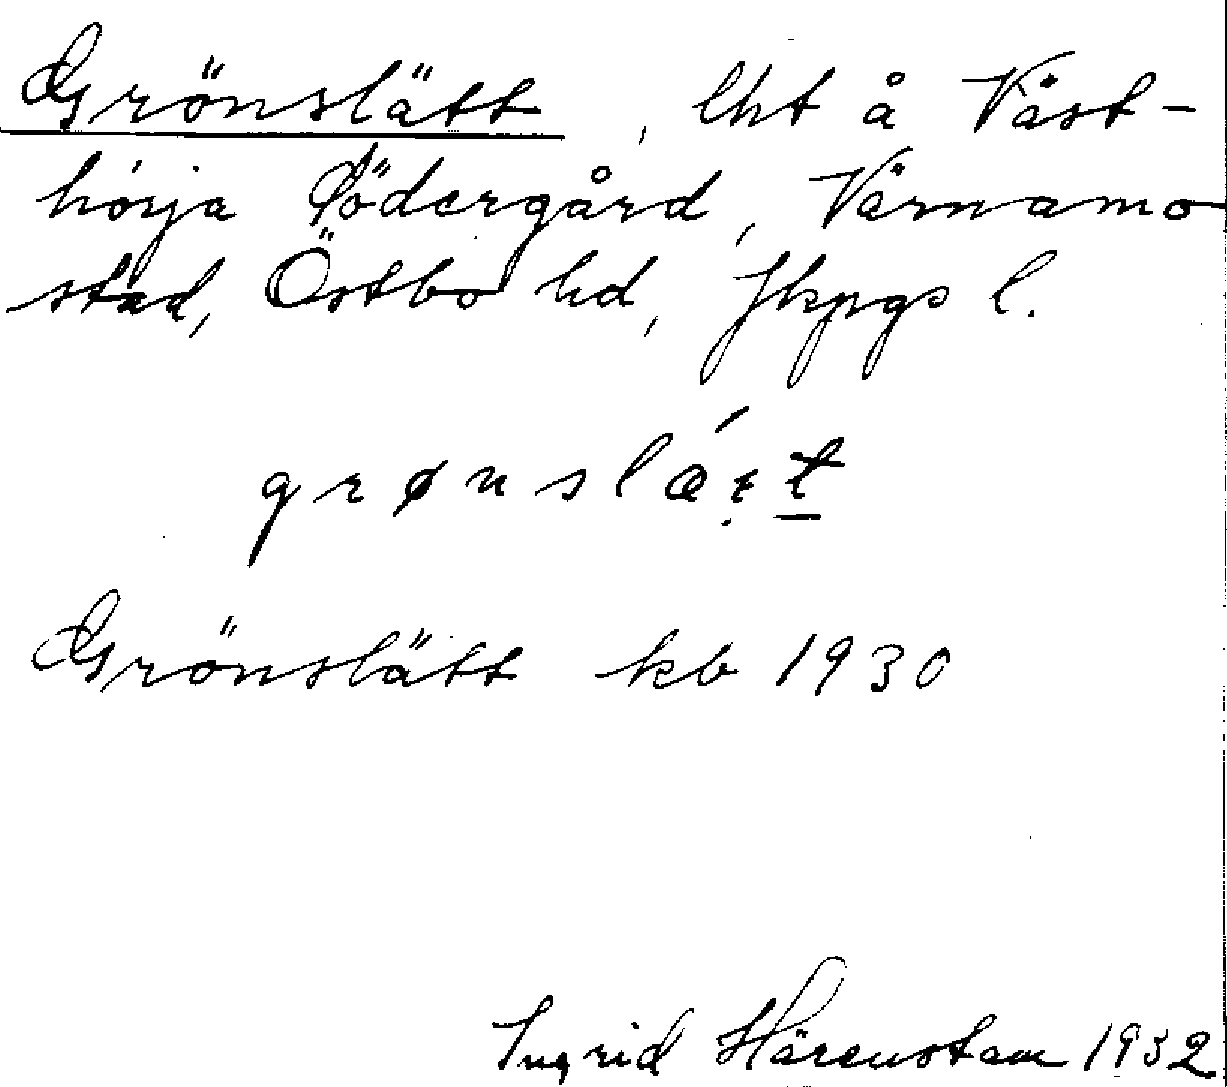 Grönslätt, lht å Väst-
horja Södergård, Värnamo
stad, Östbo hd, Jkpgs l.
grønslǽt̠
Grönslätt kb 1930
Ingrid Härenstam 1932